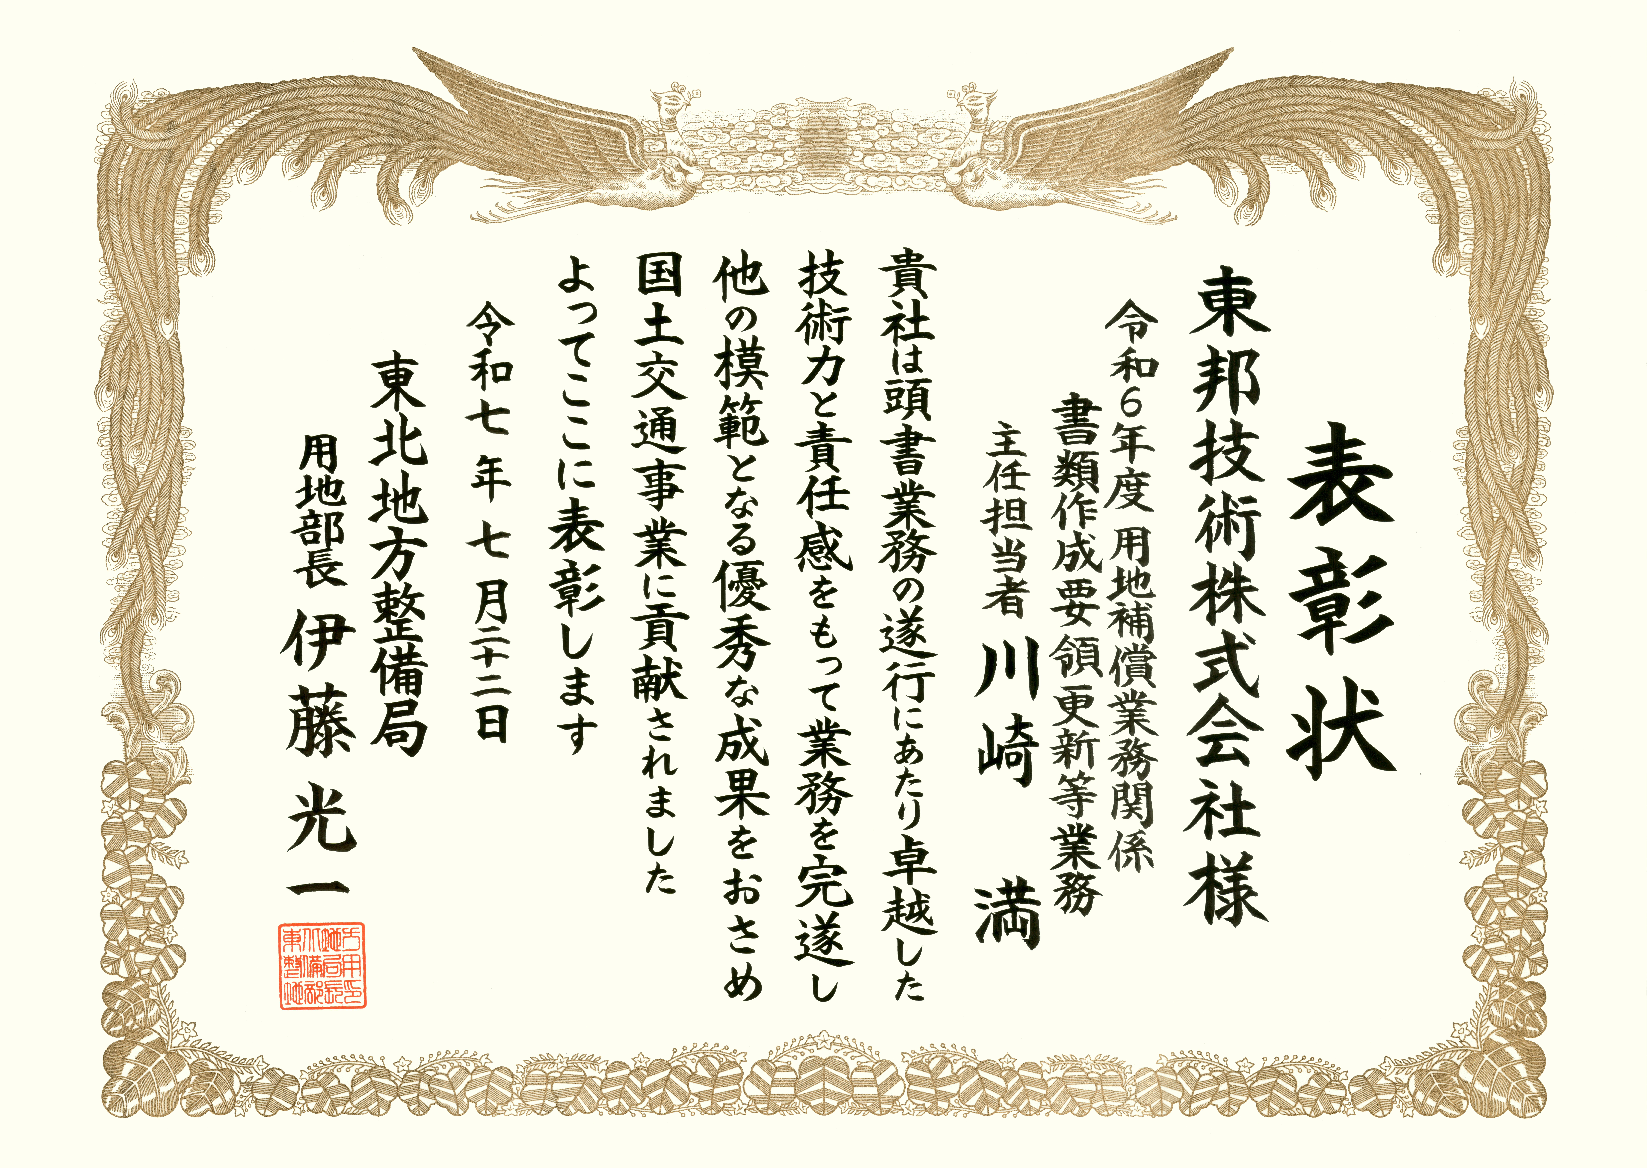 表彰状
東邦技術株式会社様
令和6年度 用地補償業務関係
書類作成要領更新等業務
主任担当者 川崎 満
貴社は頭書業務の遂行にあたり卓越した
技術力と責任感をもって業務を完遂し
他の模範となる優秀な成果をおさめ
国土交通事業に貢献されました
よってここに表彰します
令和七年七月二十二日
東北地方整備局
用地部長 伊藤光一